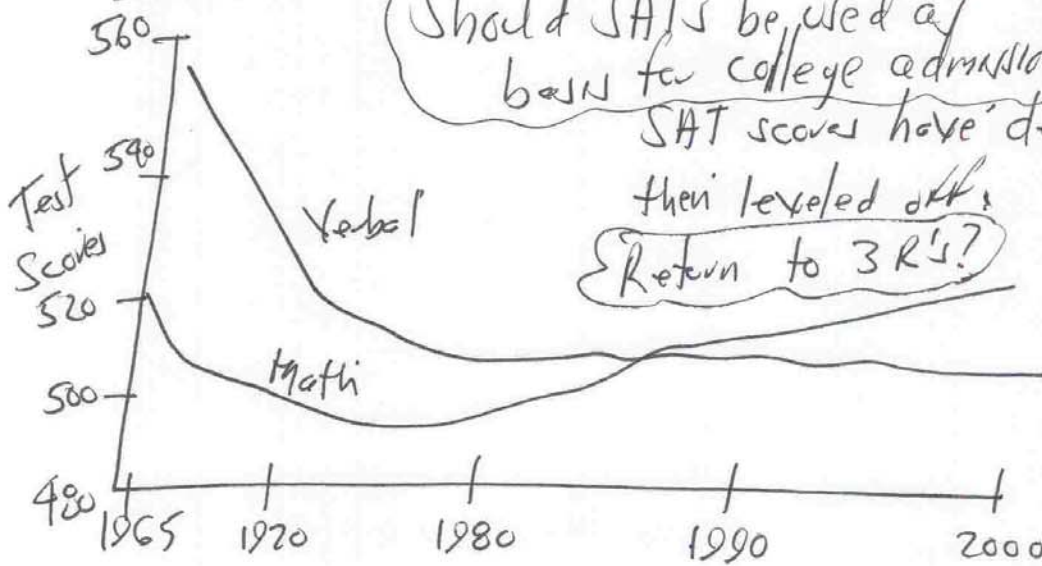 Should SATs be used as
basis for college admissio
SAT scores have d
then leveled off.
Return to 3 R's?
560
540
Test
Scores
520
500
480
Verbal
Math
1965 1920 1980 1990 2000